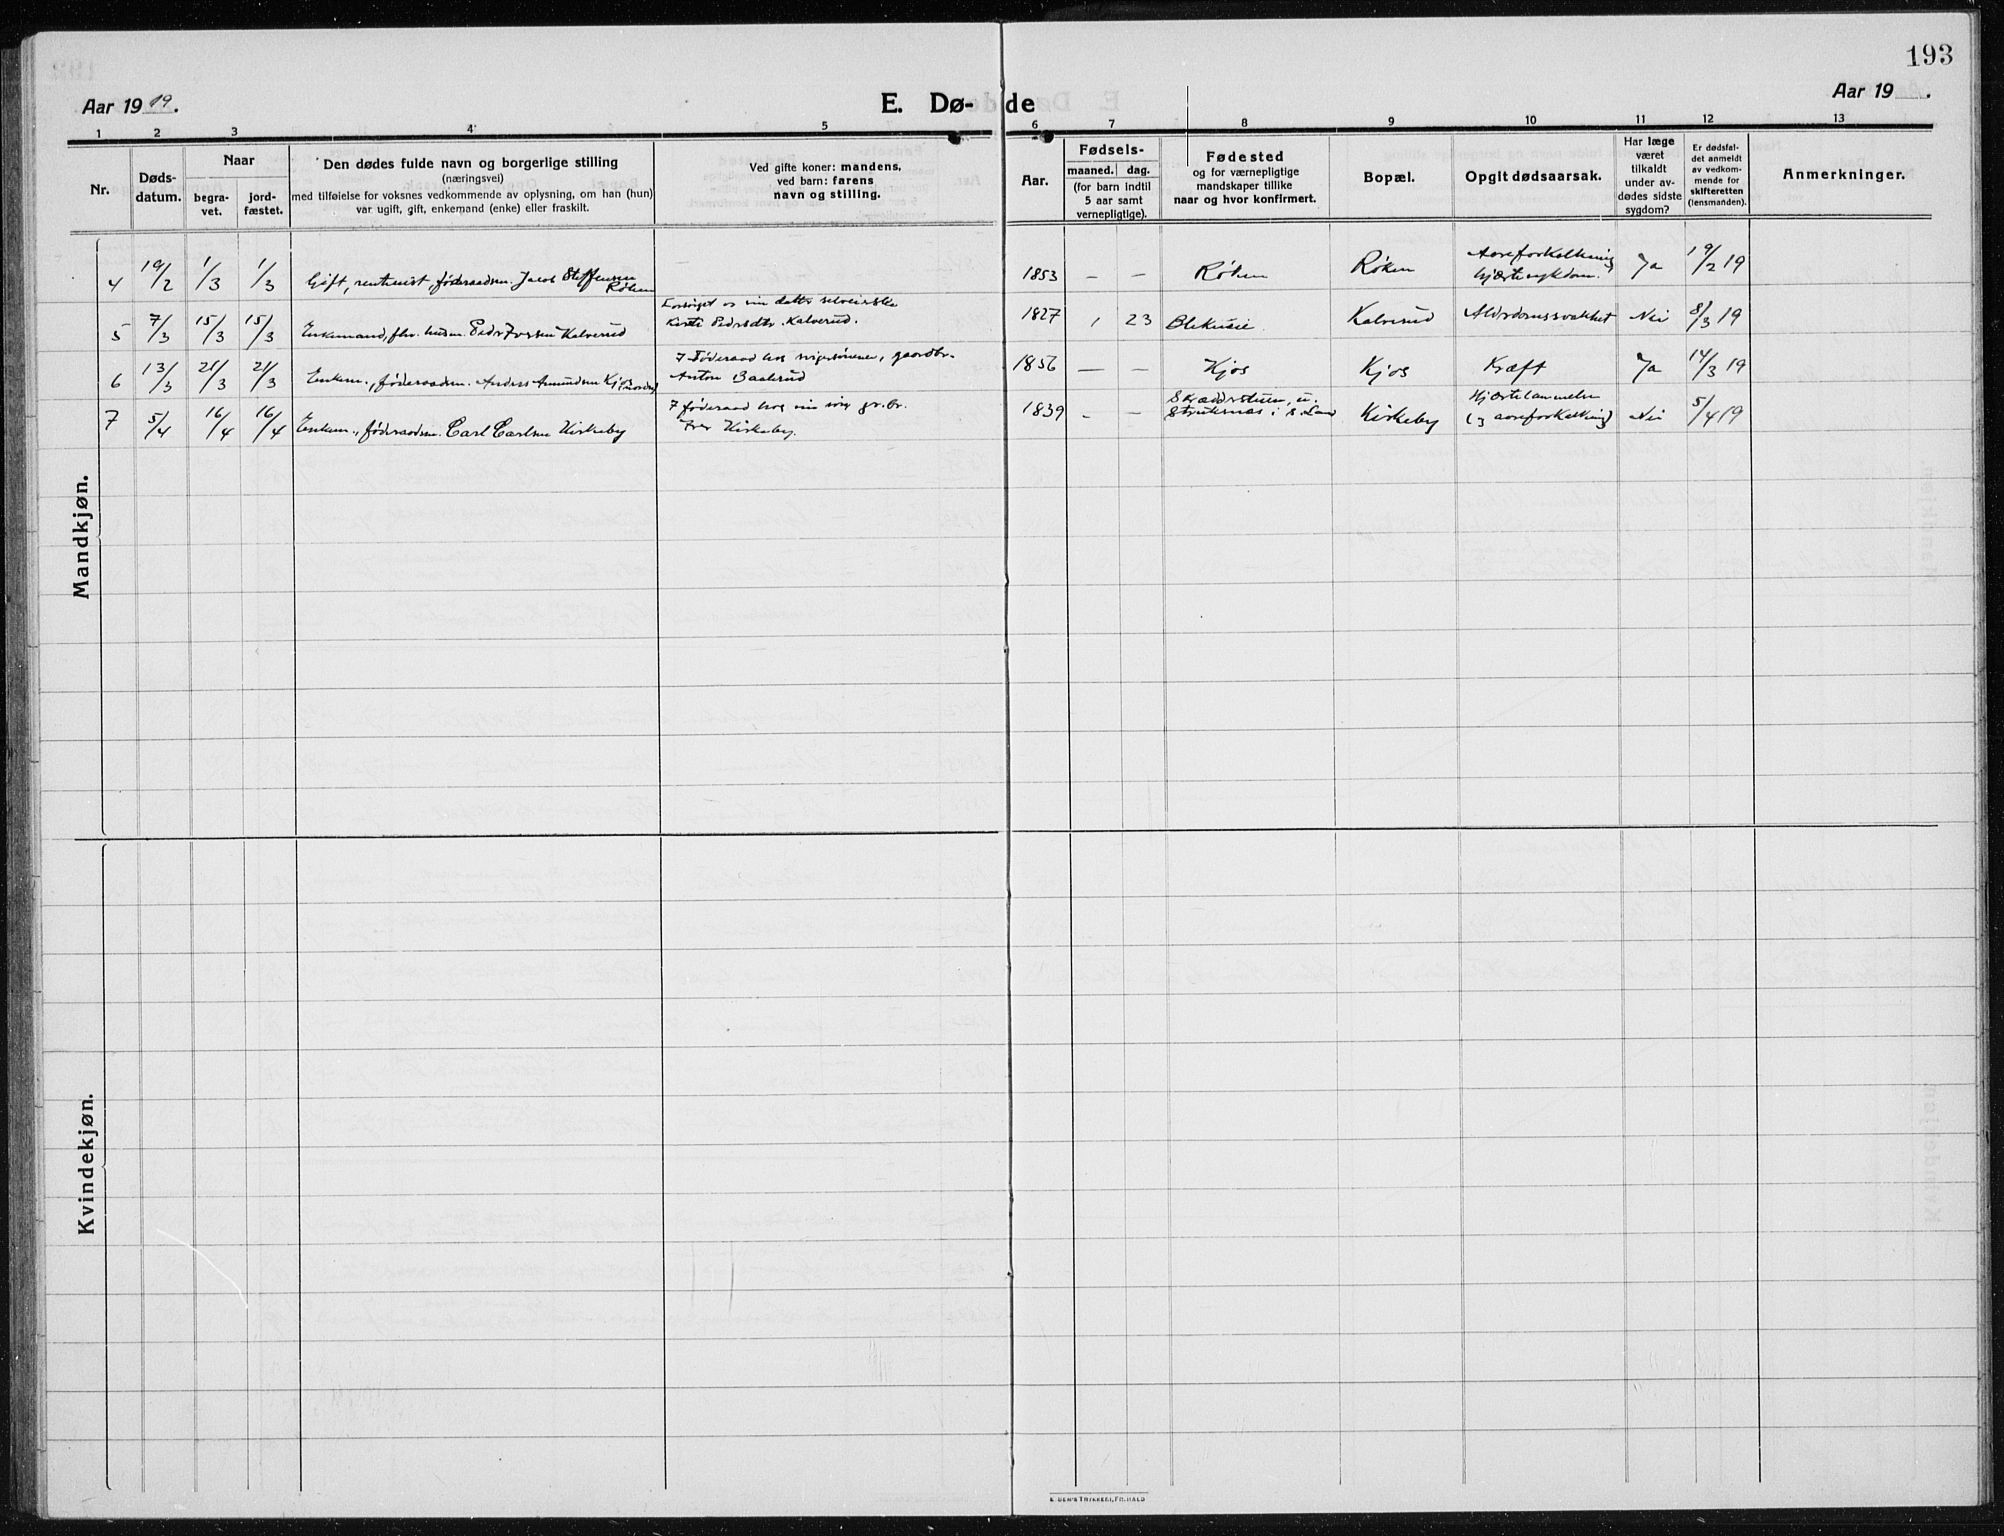 193
Aar 1919.
E. Dø-de
Aar 19 .
1 2 3 4 5 6 7 8 9 10 11 12 13
Nr.
Døds-
datum.
Naar
begra-
vet.
jord-
fæstet.
Den dødes fulde navn og borgerlige stilling
(næringsvei)
med tilføielse for voksnes vedkommende av oplysning, om han (hun)
var ugift, gift, enkemand (enke) eller fraskilt.
Ved gifte koner: mandens,
ved barn: farens
navn og stilling.
Aar.
Fødsels-
maaned. dag.
(for barn indtil
5 aar samt
vernepligtige).
Fødested
og for værnepligtige
mandskaper tillike
naar og hvor konfirmert.
Bopæl.
Opgit dødsaarsak.
Har læge
været
tilkaldt
under av-
dødes sidste
sygdom?
Er dødsfal-
det anmeldt
av vedkom-
mende for
skifteretten
(lensmanden).
Anmerkninger.
Mandkjøn.
4 19/2 1/3 1/3 Gift, rentenist, føderaadsm. Jacob Steffensen
Røken
1853 — — Røken Røken Aareforkalkning
hjertesykdom. Ja 19/2 19
5 7/3 15/3 15/3 Enkemand, fhv. husm. Peder Iversen Kalverud
Forsørget av sin datter selveierske
Kirsti Pedersdtr. Kalverud.
1827 1 23 Kalverud Alderdomssvakhet Nei 8/3 19
6 13/3 21/3 21/3 Enkem., føderaadsm. Anders Amundsen Kjos
7 Føderaad hos svigersønnen, gaardbr.
Anton Baalerud
1856 — — Kjos Kjos Kræft Ja 14/3 19
7 5/4 16/4 16/4 Enkem., føderaadsm. Carl Carlsen Kirkeby
7 føderaad hos sin søn gr.br.
Iver Kirkeby.
1839 — — i S. Land Kirkeby Hjertelammelse
(aareforkalkning) Nei 5/4 19
Kvindekjøn.